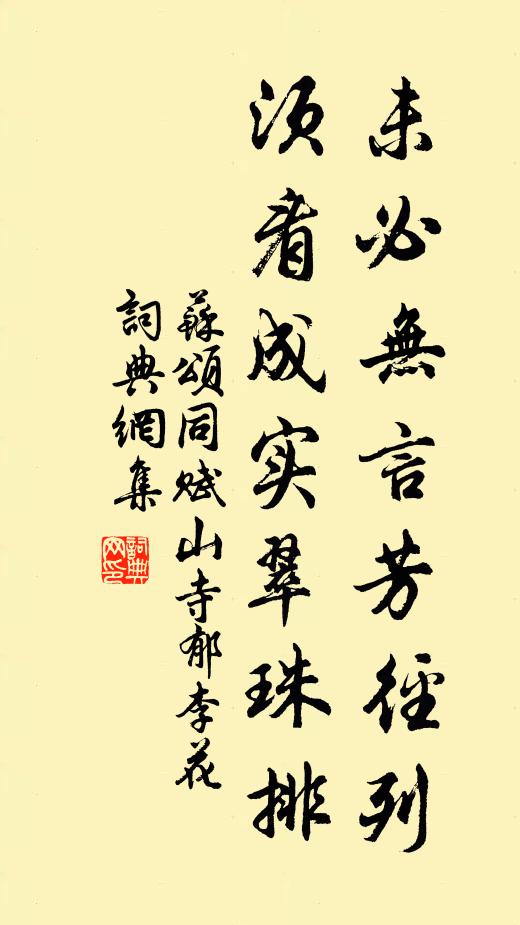 未必無言芳徑列
須看成实翠珠排
蘇頌同賦山寺郁李花
詞典網集
詞典
网印